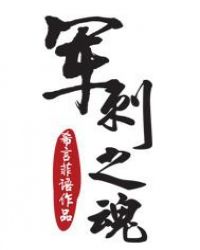 军刺之魂
希言菲语作品